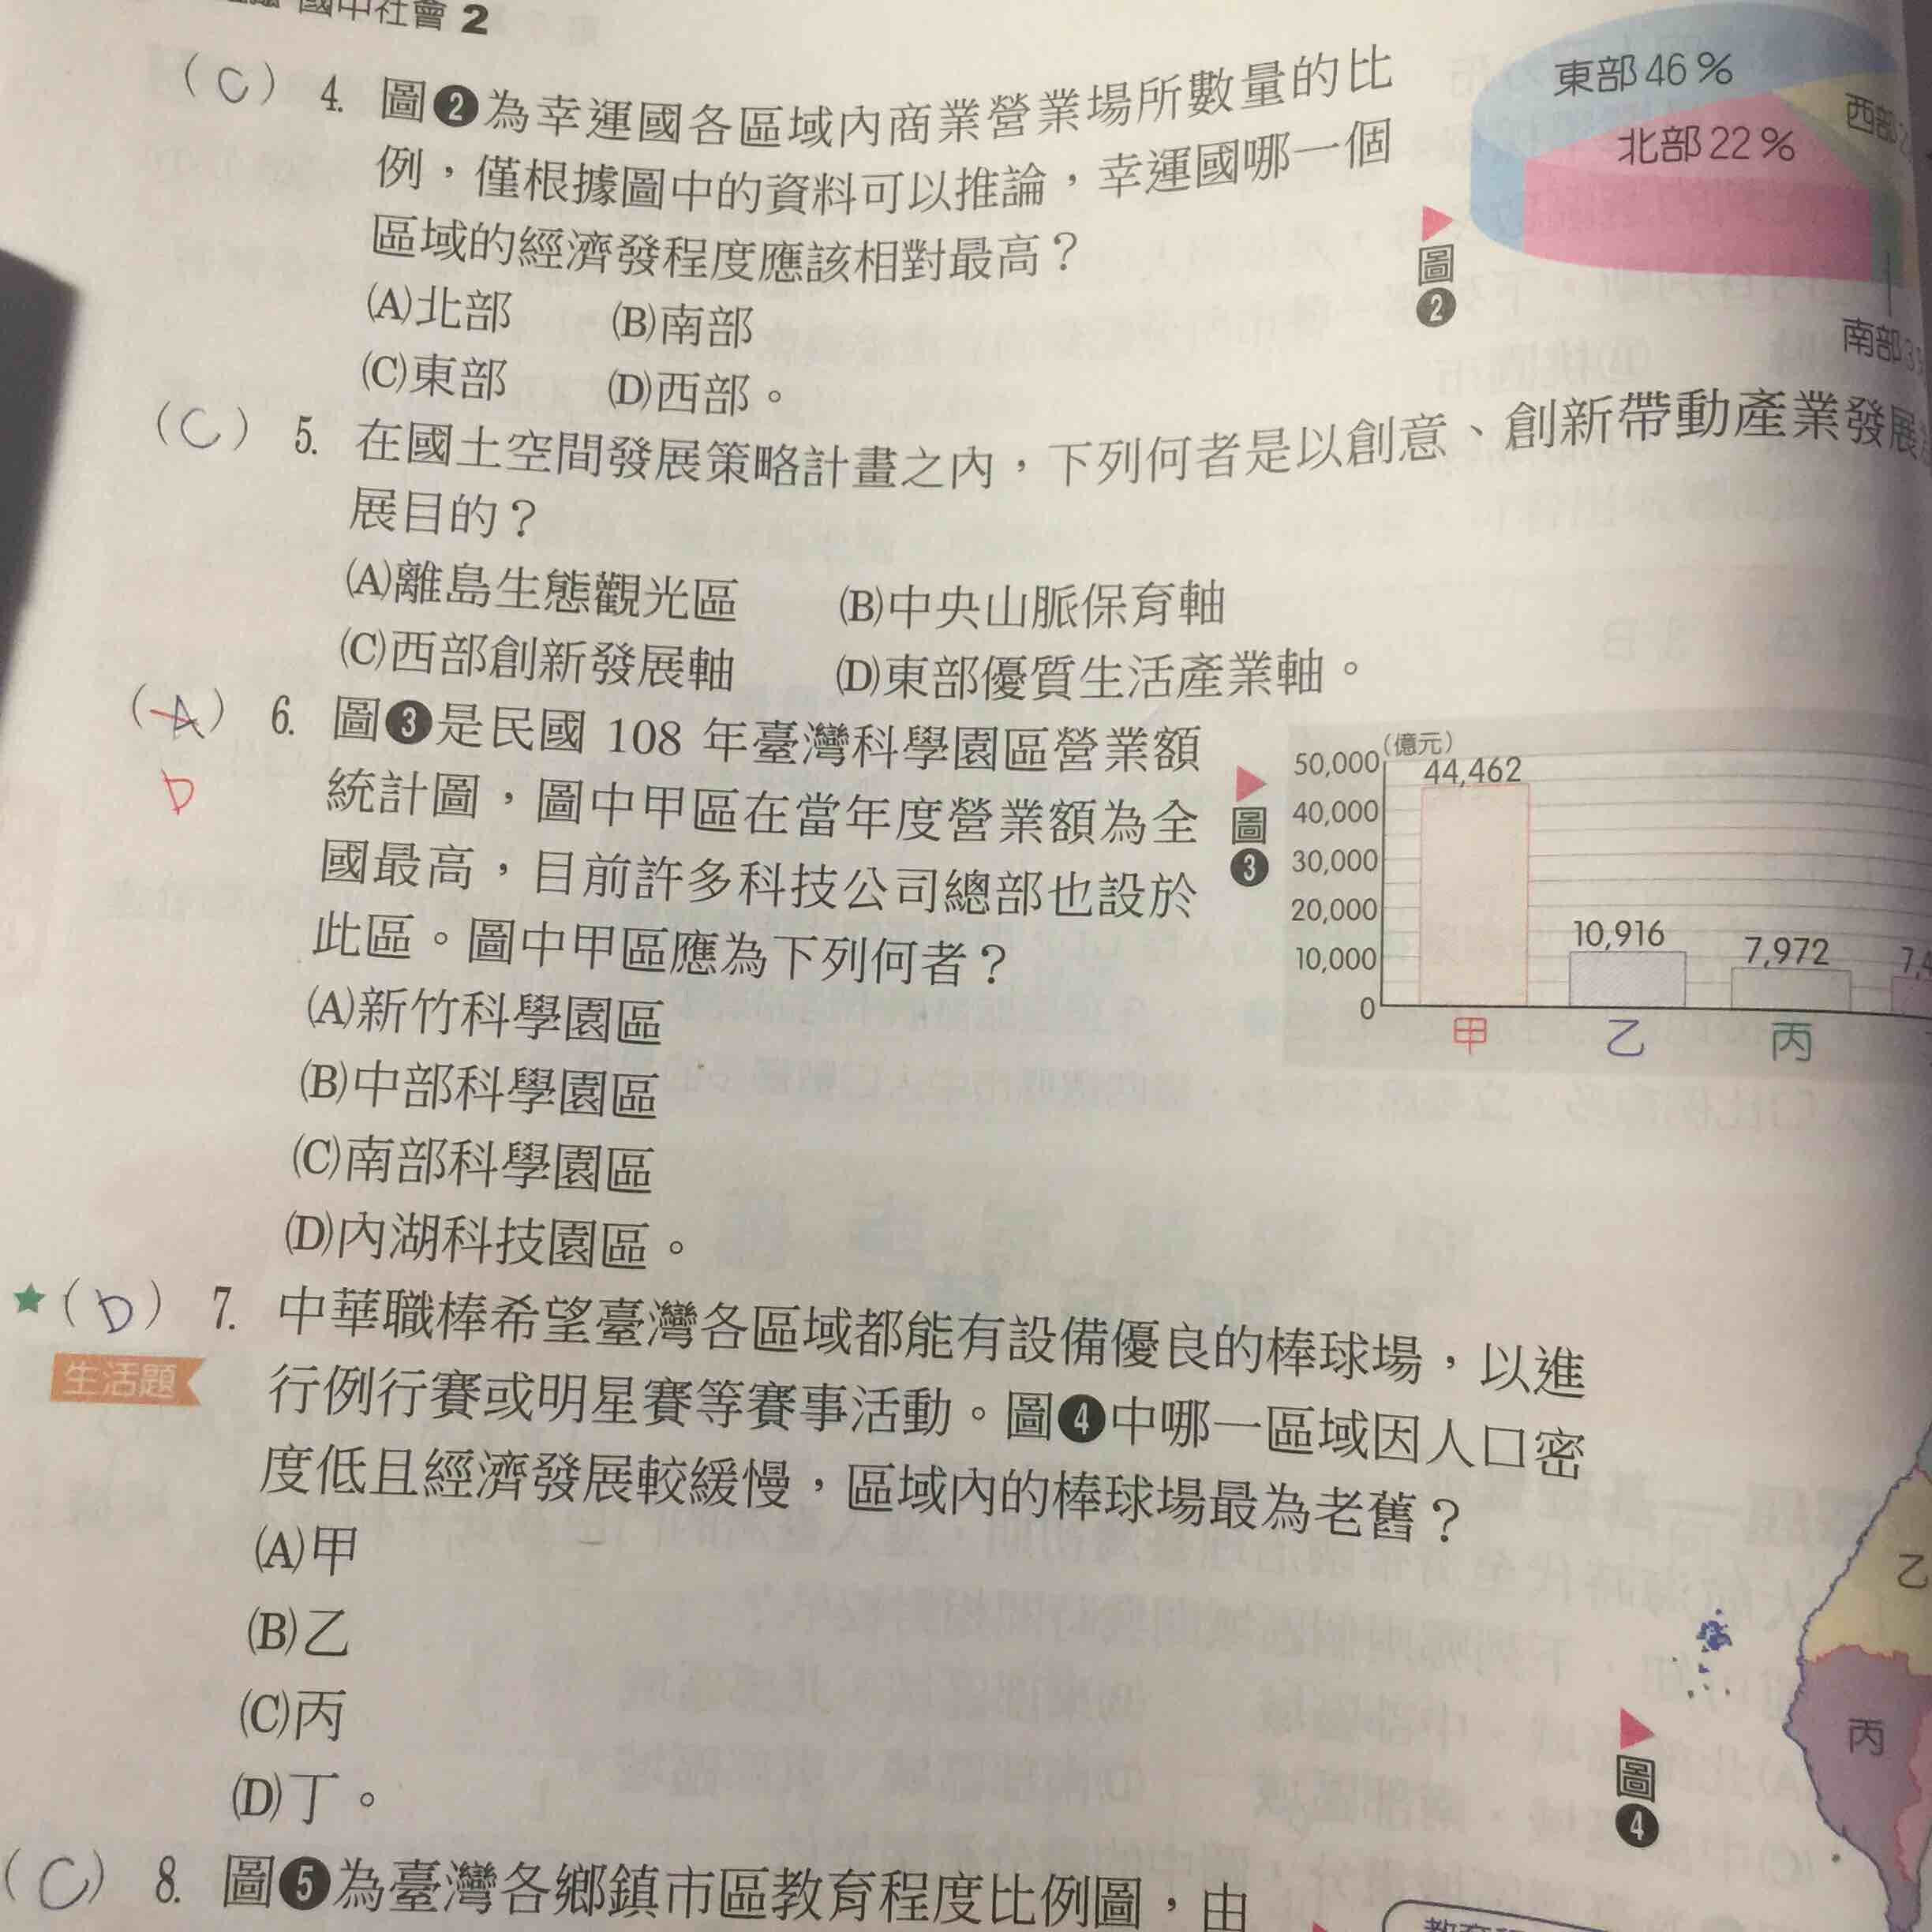 國中社會 2
(C) 4. 圖❷為幸運國各區域內商業營業場所數量的比
例，僅根據圖中的資料可以推論，幸運國哪一個
區域的經濟發程度應該相對最高？
(A)北部 (B)南部
(C)東部 (D)西部。
東部46%
北部22%
西部
南部
圖❷
(C) 5. 在國土空間發展策略計畫之內，下列何者是以創意、創新帶動產業發展
展目的？
(A)離島生態觀光區 (B)中央山脈保育軸
(C)西部創新發展軸 (D)東部優質生活產業軸。
(A) 6. 圖❸是民國 108 年臺灣科學園區營業額
D
統計圖，圖中甲區在當年度營業額為全
國最高，目前許多科技公司總部也設於
此區。圖中甲區應為下列何者？
(A)新竹科學園區
(B)中部科學園區
(C)南部科學園區
(D)內湖科技園區。
圖❸
(億元)
50,000
40,000
30,000
20,000
10,000
0
44,462
10,916
7,972
甲 乙 丙
★(D) 7. 中華職棒希望臺灣各區域都能有設備優良的棒球場，以進
生活題
行例行賽或明星賽等賽事活動。圖❹中哪一區域因人口密
度低且經濟發展較緩慢，區域內的棒球場最為老舊？
(A)甲
(B)乙
(C)丙
(D)丁。
乙
丙
圖❹
(C) 8. 圖❺為臺灣各鄉鎮市區教育程度比例圖，由